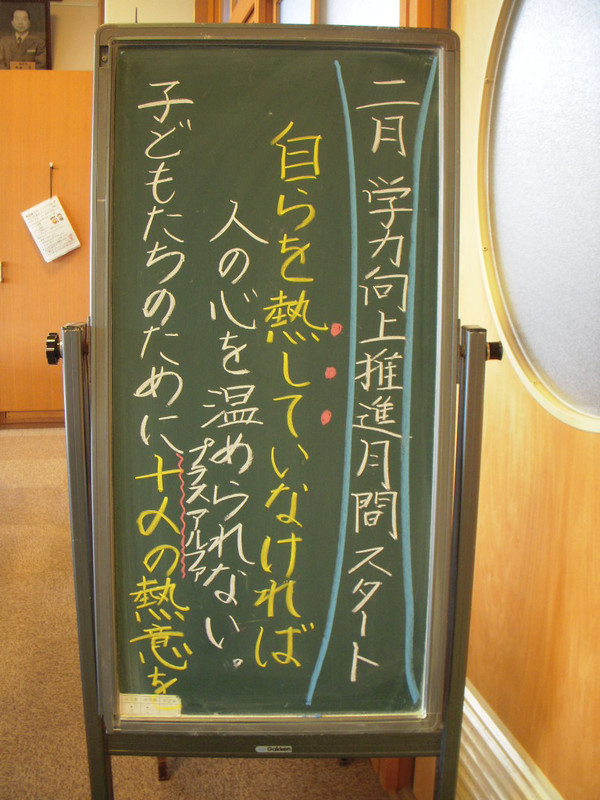 二月 学力向上推進月間 スタート
自らを熱していなければ
人の心を温められない。
子どもたちのために+αの熱意を
プラスアルファ
Gakken